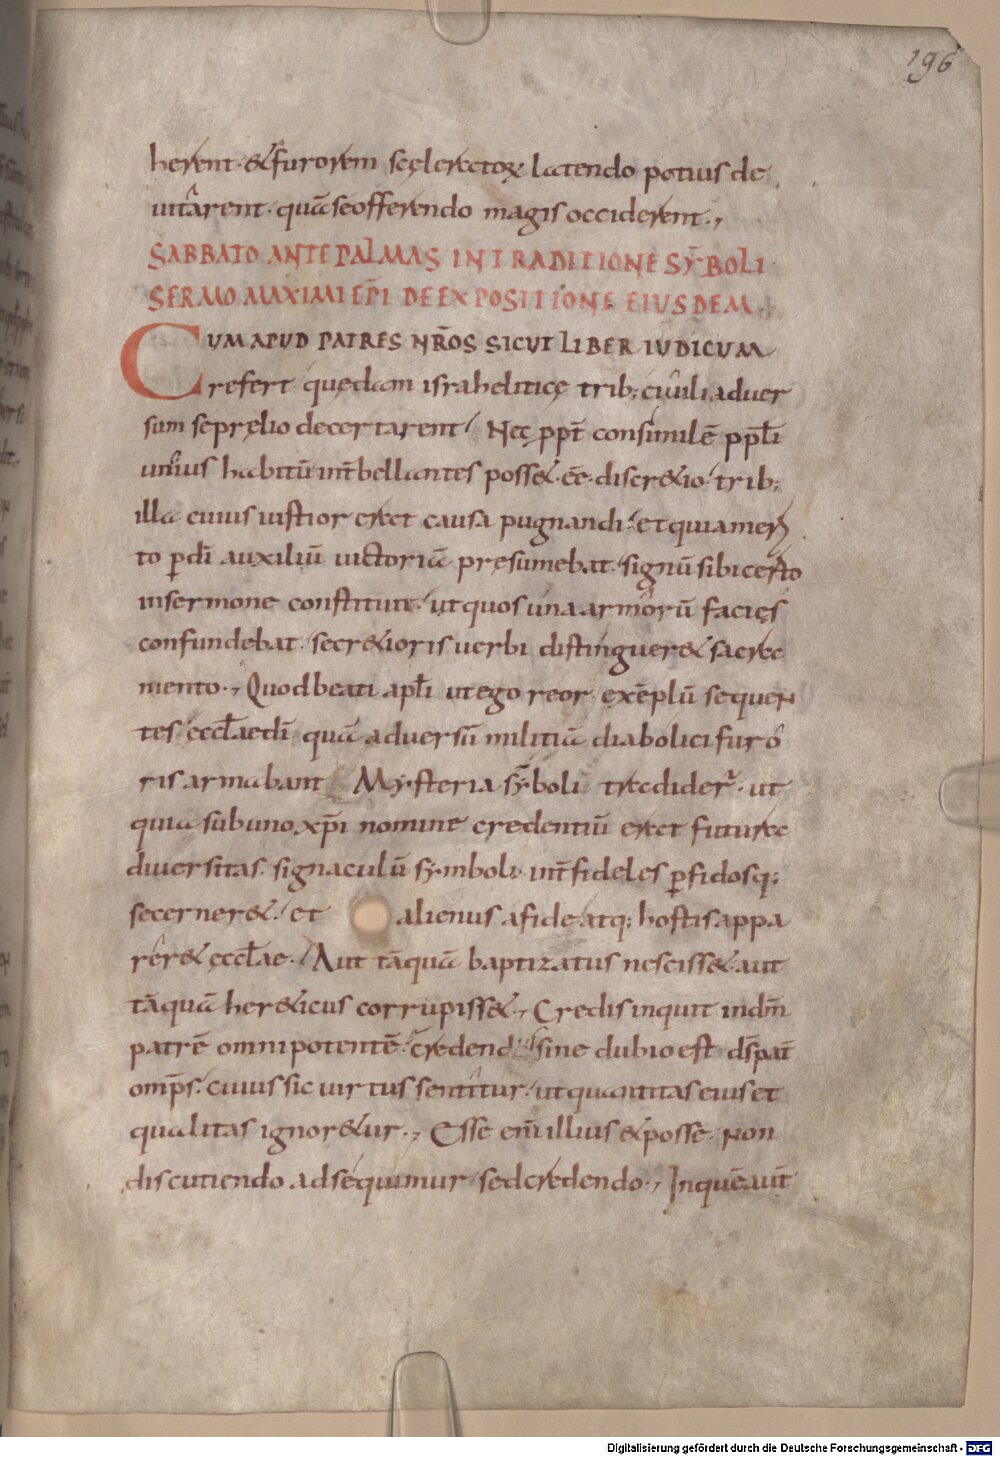 196
herent· &furorem scęleratoꝝ latendo potius de
uitarent· quā seofferendo magis occiderent·,
SABBATO ANTE PALMAS IN TRADITIONE SYMBOLI
SERMO MAXIMI EP̄I DE EXPOSITIONE EIUSDEM·
CUM APUD PATRES NR̄OS SICUT LIBER IUDICUM
refert quędam israheliticę trib; ciuili aduer
sum se pręlio decertarent· Nec ꝓpt̄ consimilē ppl̄i
unius habitū int̄ bellantes poss&· eē· discr&io· trib;
illa cuius iustior erat causa pugnandi· et quia meri
to ꝑ dī auxiliū uictoriā pręsumebat· signū sibi certo
in sermone constituit· ut quos una armorū facies
confundebat· secr&ioris uerbi distinguer& sacra
mento·, Quod beati apl̄i ut ego reor exēplū sequen
tes· eccl̄ae dī quā aduersū militiā diabolici furo
ris armabant· Mysteria symboli tradider̄· ut
quia sub uno xp̄i nomine credentiū erat futura
diuersitas· signaculū symboli int̄ fideles ꝑfidosq;
secerner&· et alienus a fide atq; hostis appa
rer& eccl̄ae· Aut tāquā baptizatus nesciss&· aut
tāquā her&icus corrupiss&·, Credis inquit in dm̄
patrē omnipotentē· credend sine dubio est dš pat̄
omp̄s· cuius sic uirtus sentitur· ut quantitas eius et
qualitas ignor&ur·, Esse em̄ illius &posse· Non
discutiendo adsequimur sed credendo·, In quē aut̄
Digitalisierung gefördert durch die Deutsche Forschungsgemeinschaft - DFG